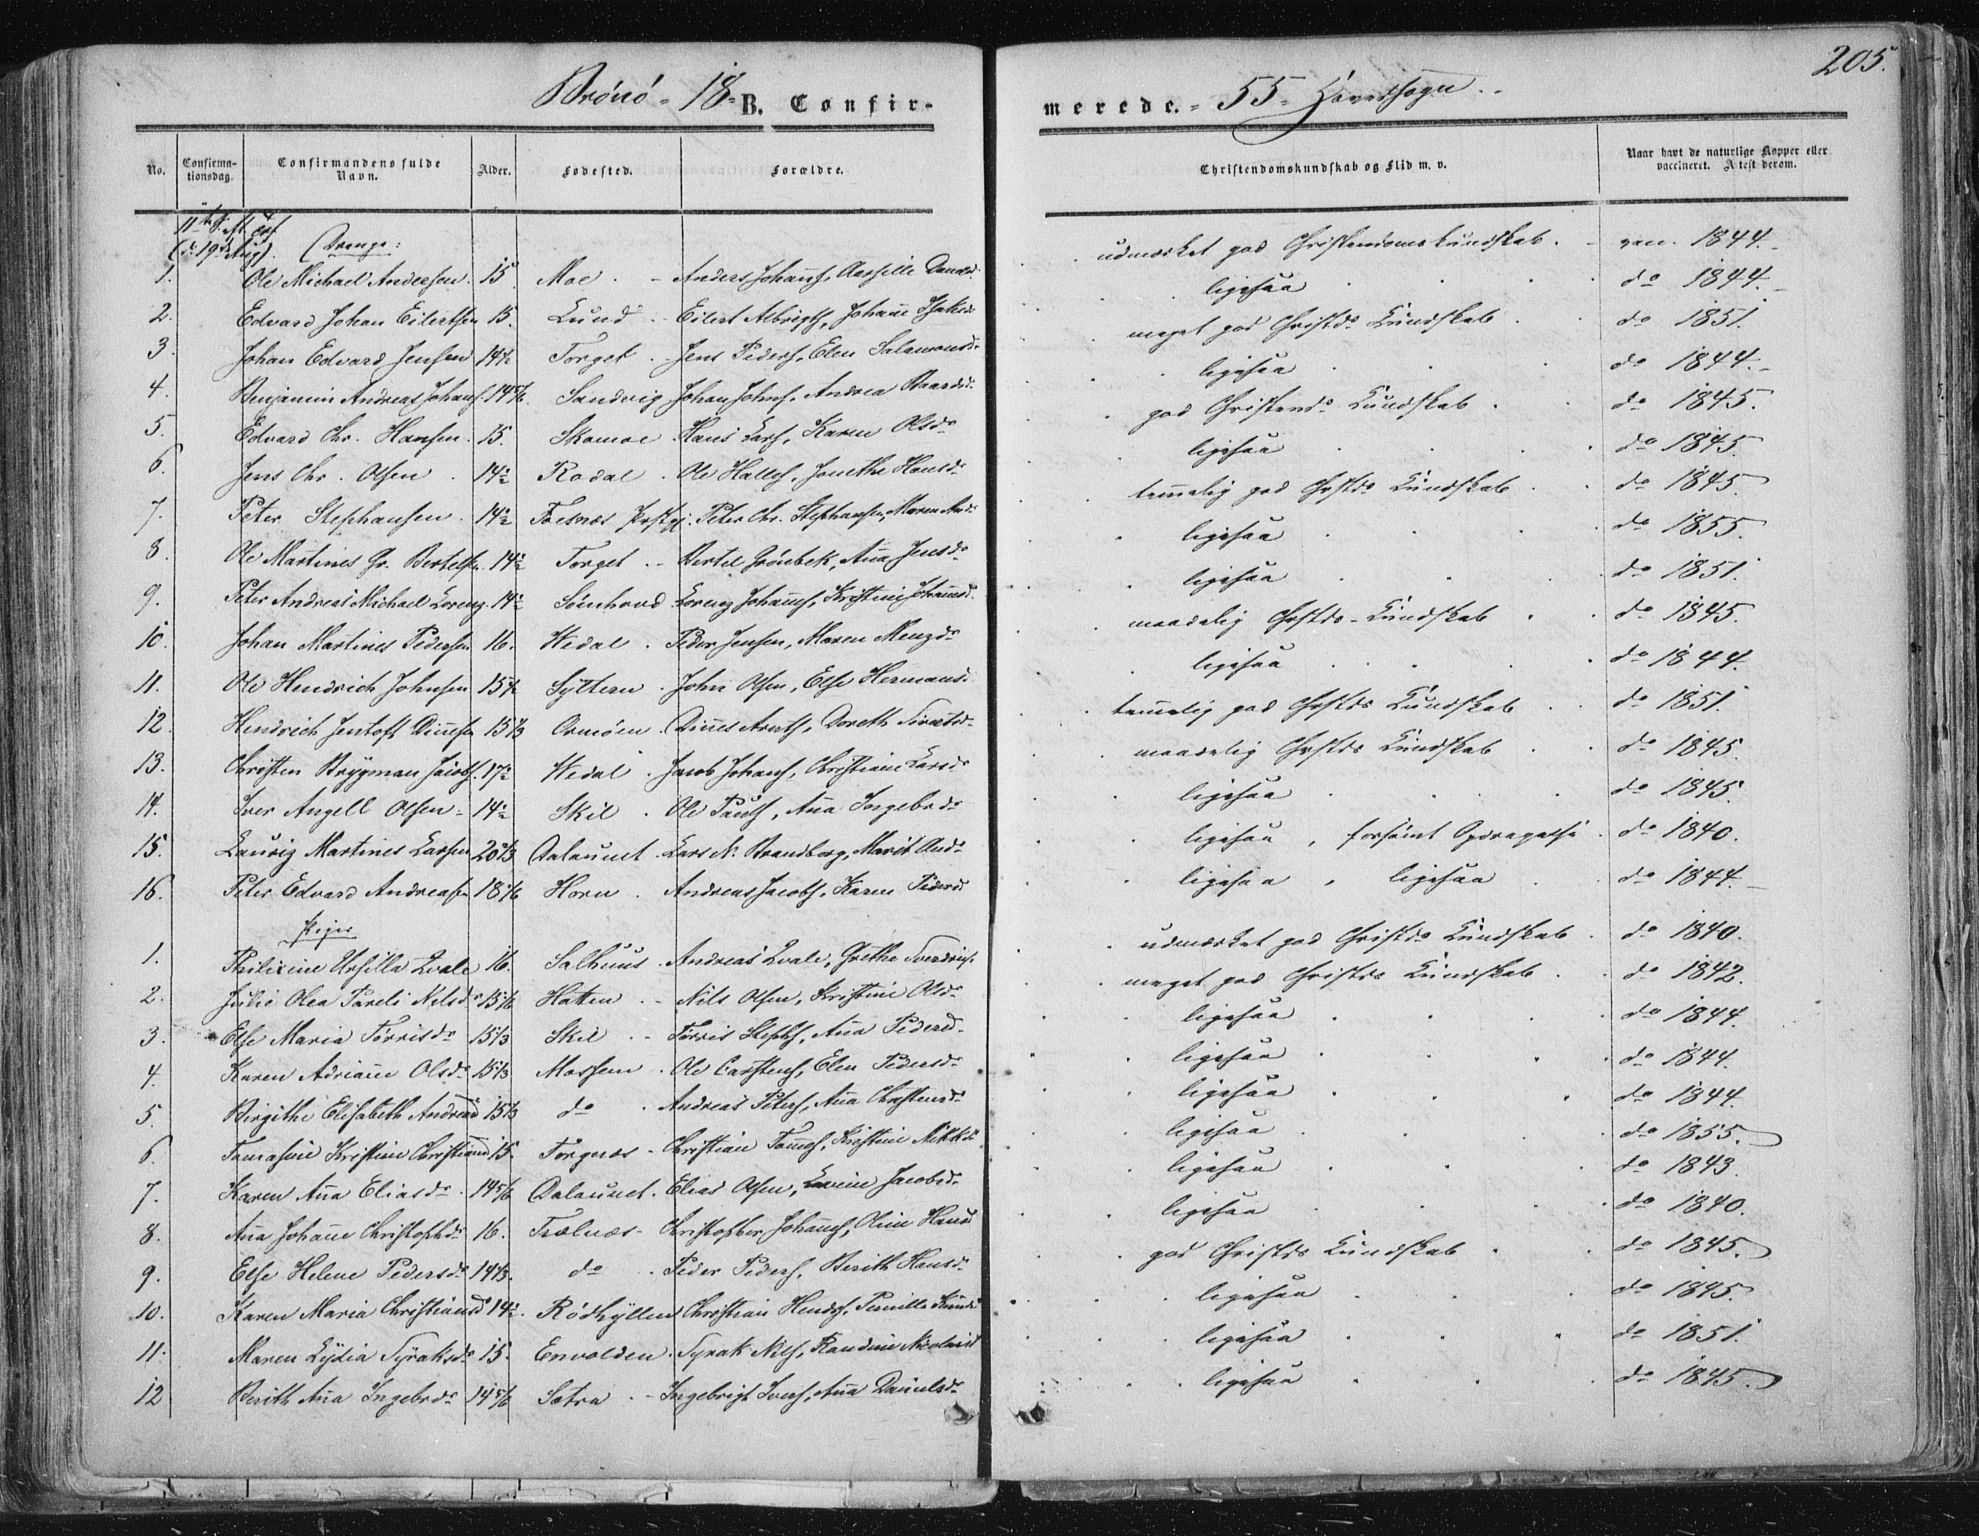 205.
Brönö 18 B. Confirmerede. 55 Hovedsogn
No. Confirmationsdag. Confirmandens fulde Navn. Alder. Fødested. Forældre. Christendomskundskab og Flid m. v. Naar havt de naturlige Kopper eller vaccineret. Attest derom.
11te S. eft.
(d. 19de Aug). Drenge:
1. Ole Michael Andersen. 15 Moe - Anders Johans, Danielsd. udmærket god Christendomskundskab. vac. 1844.
2. Edvard Johan Eilertsen 15. Lund - Eilert Albrigts, Johane ligesaa do 1844.
3. Johan Edvard Jensen 14½ Torget - Jens Peders, Elen Salamonsd. meget god Christds Kundskab do 1851.
4. Benjamin Andreas Johans. 14 5/6. Sandvig Johan Johns, Andrea Baardsd. ligesaa do 1844.
5. Edvard Chr. Hansen. 15. Skomoe Hans Lars, Karen Olsdr god Christends Kundskab do 1845.
6. Jens Chr. Olsen 14½ Rodal Ole Halls, Jonetha Hansdr ligesaa do 1845.
7. Peter Stephansen 14½ Foesnæs Prstgj. Peter Chr. Stephansen, Maren Andr temmelig god Chrstds Kundskab do 1845.
8. Ole Martines Gr. Bertelsen 14½ Torget - Bertel Grönbek, Ana Jensdr ligesaa do 1855.
9. Peter Andreas Michael Lorenz. 14½ Sömhovd Lorenz Johans, Kristine Johansd. ligesaa do 1851.
10. Johan Martines Pedersen 16. Wedal Peder Jensen, Maren Menzdr maadelig Chrstds Kundskab do 1845.
11. Ole Hendrich Johnsen 15½ Syltern John Olsen, Else Hermansd. ligesaa do 1844.
12. Hendrich Jentoft Dinesen 15 1/3 Ormöen Dines Arnts, Doreth Sivertsdr temmelig god Chrstds Kundskab do 1851.
13. Christen Brygman Jacobs. 17½ Wedal Jacob Johans, Christiane Larsdr maadelig Chrstds Kundskab do 1845.
14. Iver Angell Olsen 14½ Skil Ole Pauls, Ana Ingebrdr ligesaa do 1845.
15. Laurig Martines Larsen 20 2/3 Aalaunet Lars N. Brandborg, Marit Andr ligesaa, forsömt Opdragelse do 1840.
16. Peter Edvard Andreasen 18 1/6 Horn Andreas Jacobs, Karen Pedersd ligesaa, ligesaa do 1844.
Piger
1. Philixine Ursilla Qvale 16. Salhuus Andreas Qvale, Grethe Sverdrup. udmærket god Christds Kundskab do 1840.
2. Julie Olea Pareli Nilsdr 15 1/6 Hatten Nils Olsen, Kristine Olsdr meget god Christds Kundskab do 1842.
3. Else Maria Torrisdr 15 1/3 Skil Torris Stephs, Ana Pedersd. ligesaa do 1844.
4. Karen Adriane Olsdr 15 1/3 Mossem Ole Carstens, Elen Pedersdr ligesaa do 1844.
5. Birgithe Elisabeth Andreasd 15 1/3 do Andreas Peters, Ana Christensdr ligesaa do 1844.
6. Tomasine Kristine Christiansd 15. Torgnæs Christian Tomas, Kirstine ligesaa do 1855.
7. Karen Ana Eliasdr 14 5/6 Aalaunet. Elias Olsen, Jacobsdr ligesaa do 1843.
8. Ana Johane Christophdr 16. Trælnæs Christopher Johans, Oline Hansd ligesaa do 1840.
9. Else Helene Pedersdr 14 1/3. do Peder Peders, Berith Hansdr god Christds Kundskab do 1845.
10. Karen Maria Christiansd 14½. Rödhyllen Christian Hendrs, Pernille ligesaa do 1845.
11. Maren Lydia Syraksdr 15. Envolden Syrak Nils, Randine Nicolaisd ligesaa do 1851.
12 Berith Ana Ingebrdr 14 5/6 Sætra - Ingebrigt Ivers, Ana Danielsdr ligesaa do 1845.